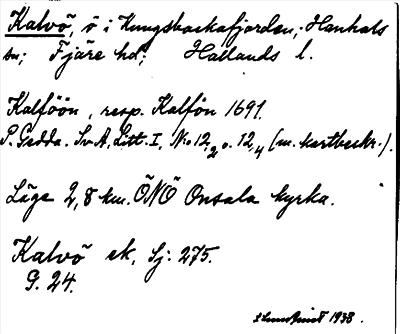 Kalvö, ö i Kungsbackafjorden; Hanhals
sn; Fjäre hd; Hallands l.
Kalföön, resp. Kalfön 1691.
P. Gedda. Sv. A. Litt. I, No 12,2 o. 12,4 (m. kartbeskr.).
Läge 2,8 km. ÖNÖ Onsala kyrka.
Kalvö ek, Sj: 275.
G. 24.
1938.